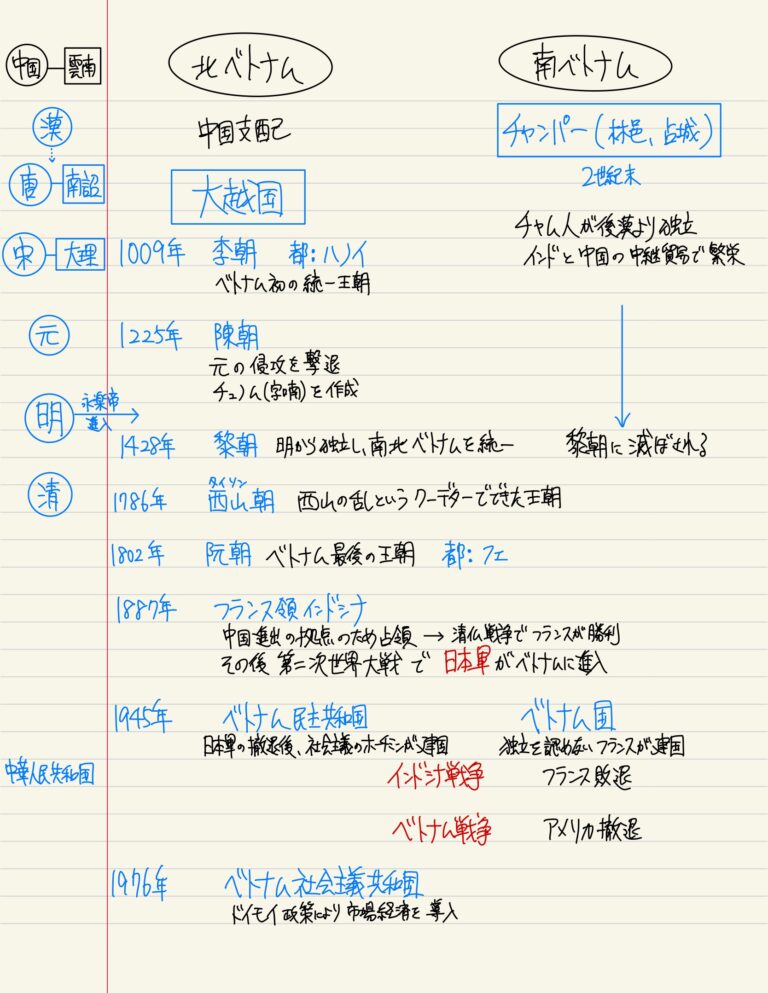 中国 雲南 北ベトナム 南ベトナム
漢 中国支配 チャンパー(林邑、占城)
唐 南詔 大越国 2世紀末
チャム人が後漢より独立
宋 大理 1009年 李朝 都:ハノイ インドと中国の中継貿易で繁栄
ベトナム初の統一王朝
元 1225年 陳朝
元の侵攻を撃退
チュノム(字喃)を作成
明 永楽帝 進入
1428年 黎朝 明から独立し、南北ベトナムを統一 黎朝に滅ぼされる
タイソン
清 1786年 西山朝 西山の乱というクーデターでできた王朝
1802年 阮朝 ベトナム最後の王朝 都:フエ
1887年 フランス領インドシナ
中国進出の拠点のため占領 → 清仏戦争でフランスが勝利
その後 第二次世界大戦で 日本軍がベトナムに進入
1945年 ベトナム民主共和国 ベトナム国
日本軍の撤退後、社会主義のホーチミンが建国 独立を認めないフランスが建国
中華人民共和国 インドシナ戦争 フランス敗退
ベトナム戦争 アメリカ撤退
1976年 ベトナム社会主義共和国
ドイモイ政策により市場経済を導入